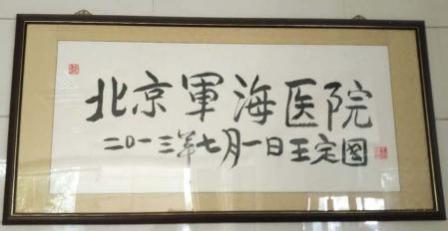 北京軍海医院
二〇一三年七月一日王定國